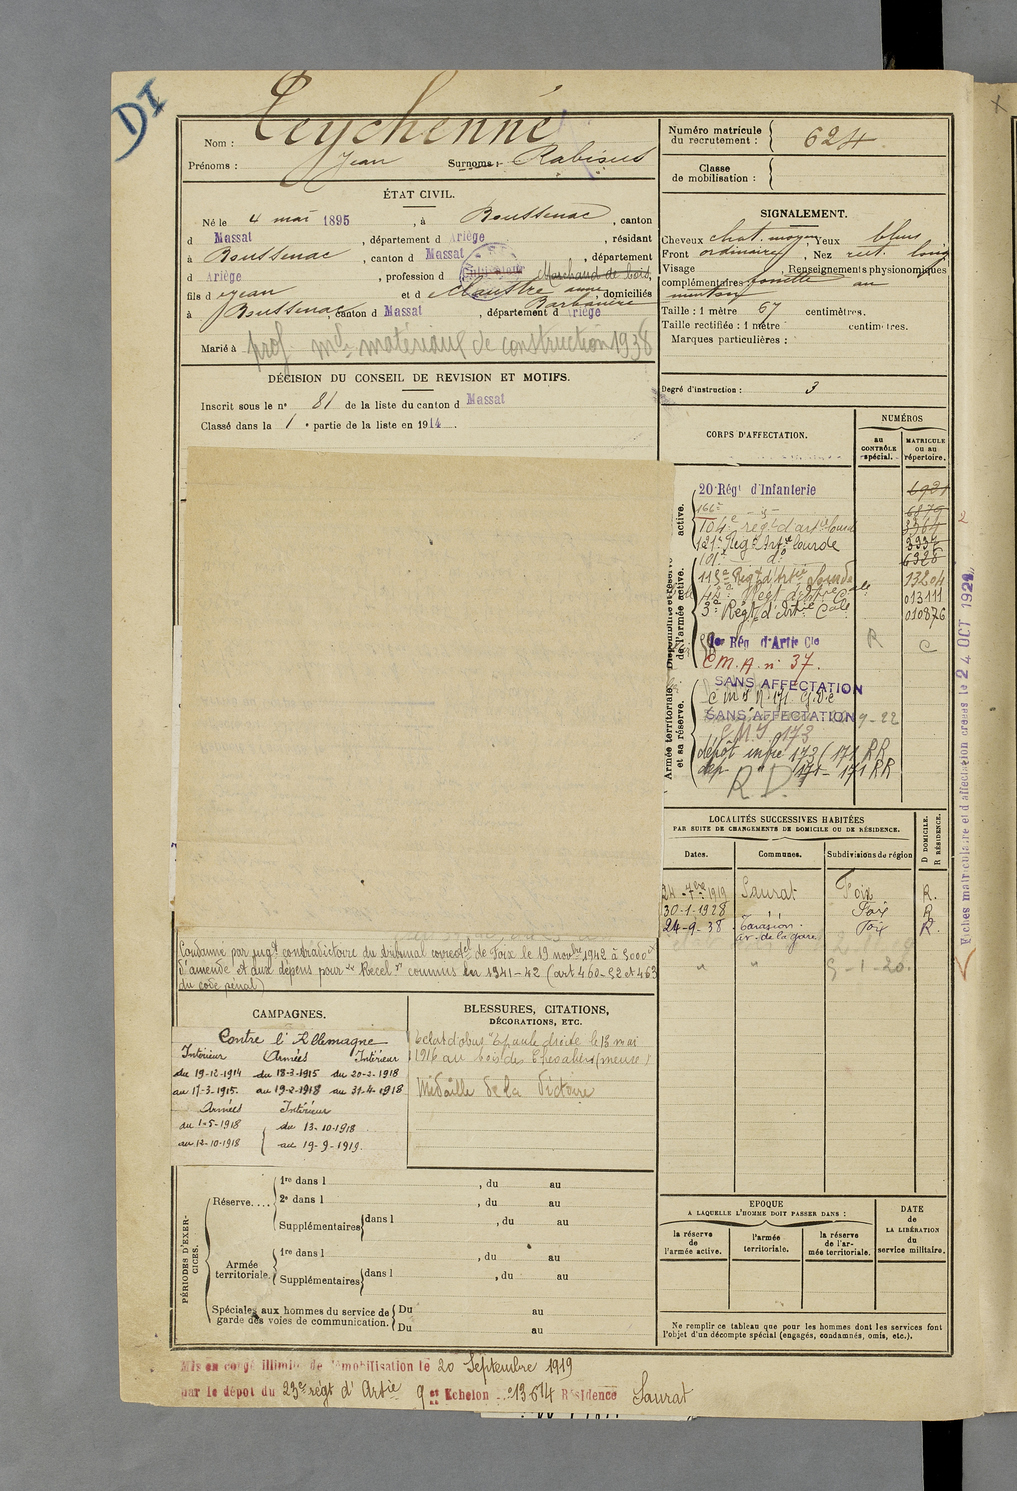 DI
Nom : Teychenné
Prénoms : Jean Surnoms : Rabisus
Numéro matricule du recrutement : 624
Classe de mobilisation :
ÉTAT CIVIL.
Né le 4 mai 1895, à Boussenac, canton
d Massat, département d Ariège, résidant
à Boussenac, canton d Massat, département
d Ariège, profession d Cultivateur Marchand de bois,
fils d e Jean et d e Claustre anne Barbanère, domiciliés
à Boussenac, canton d Massat, département d Ariège
Marié à
prof. md matériaux de construction 1938
SIGNALEMENT.
Cheveux chat. moyen, Yeux bleus
Front ordinaire, Nez rect. long
Visage , Renseignements physionomiques
complémentaires fossette au
menton
Taille : 1 mètre 67 centimètres.
Taille rectifiée : 1 mètre centimètres.
Marques particulières :
Degré d'instruction : 3
DÉCISION DU CONSEIL DE REVISION ET MOTIFS.
Inscrit sous le n° 81 de la liste du canton d Massat
Classé dans la 1e partie de la liste en 1914.
CORPS D'AFFECTATION.
NUMÉROS
au CONTRÔLE spécial.
MATRICULE OU AU répertoire.
Disponibilité et réserve de l'armée active.
active.
20 Régt d'Infanterie
166e - d° - 6879
104e régt d'art. lourde
121e Reg. Art. lourde
101e d° 6328
115e Régt d'Artie Lourde 13204
44e Régt d'Artie Cale 013111
3e Régt d'Artie Cale 010876
1er Rég d'Artie Cle R C
C.M.A. n° 37.
Armée territoriale et sa réserve.
SANS AFFECTATION
C M I N° 171 G.D.C
SANS AFFECTATION 9-22
C M I 173
dépôt infie 173 (171 RR
dep " 171 - 171 RR
R D.
Fiches matriculaire et d'affectation créées le 24 OCT 1921
LOCALITÉS SUCCESSIVES HABITÉES
PAR SUITE DE CHANGEMENTS DE DOMICILE OU DE RÉSIDENCE.
Dates. Communes. Subdivisions de région
D DOMICILE. R RÉSIDENCE.
24 - 7bre 1919 Saurat Foix R.
30-1-1928 Foix R
24-9-38 Tarascon. av. de la gare Foix R.
" " 5-1-20.
Condamné par jugt contradictoire du tribunal correctel de Foix le 19 novbre 1942 à 5000 f
d'amende et aux dépens pour "Recel" commis en 1941-42 (art 460-52 et 463
du code pénal)
CAMPAGNES.
Contre l'Allemagne
Intérieur Armées Intérieur
du 19-12-1914 du 18-3-1915 du 20-2-1918
au 17-3-1915. au 19-2-1918 au 31-4-1918
Armées Intérieur
du 1-5-1918 du 13-10-1918
au 12-10-1918 au 19-9-1919.
BLESSURES, CITATIONS,
DÉCORATIONS, ETC.
Eclat d'obus "Epaule droite le 18 mai
1916 au bois des Chevaliers (meuse)
Médaille de la Victoire
PÉRIODES D'EXERCICES.
Réserve....
1re dans l , du au
2e dans l , du au
Supplémentaires dans l , du au
Armée territoriale.
1re dans l , du au
Supplémentaires dans l , du au
Spéciales aux hommes du service de garde des voies de communication.
Du au
Du au
EPOQUE
A LAQUELLE L'HOMME DOIT PASSER DANS :
la réserve de l'armée active.
l'armée territoriale.
la réserve de l'armée territoriale.
DATE de LA LIBÉRATION du service militaire.
Ne remplir ce tableau que pour les hommes dont les services font
l'objet d'un décompte spécial (engagés, condamnés, omis, etc.).
Mis en congé illimité de démobilisation le 20 Septembre 1919
par le dépôt du 23e régt d'Artie 9e Echelon n° 13514 Résidence Saurat